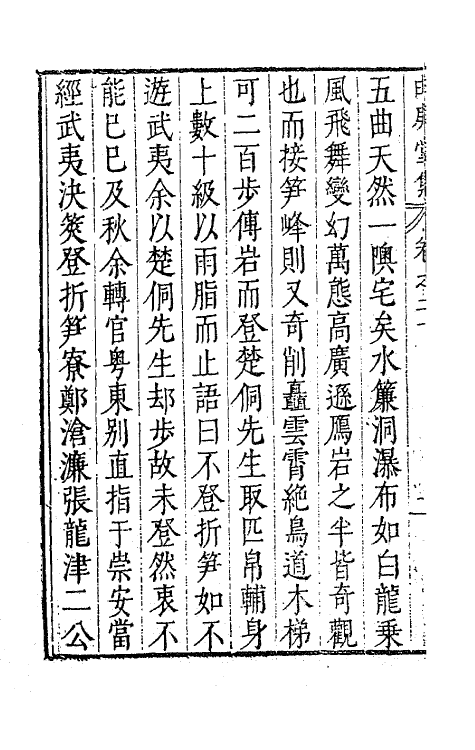 五曲天然一隩宅矣水簾洞瀑布如白龍乗
風飛舞變幻萬態高廣遜鴈岩之半皆奇觀
也而接笋峰則又奇削矗雲霄絶鳥道木梯
可二百步傳岩而登楚侗先生取匹帛輔身
上數十級以雨脂而止語曰不登折笋如不
遊武夷余以楚侗先生却步故未登然衷不
能已已及秋余轉官粤東别直指于崇安當
經武夷決筴登折笋寮鄭滄濂張龍津二公